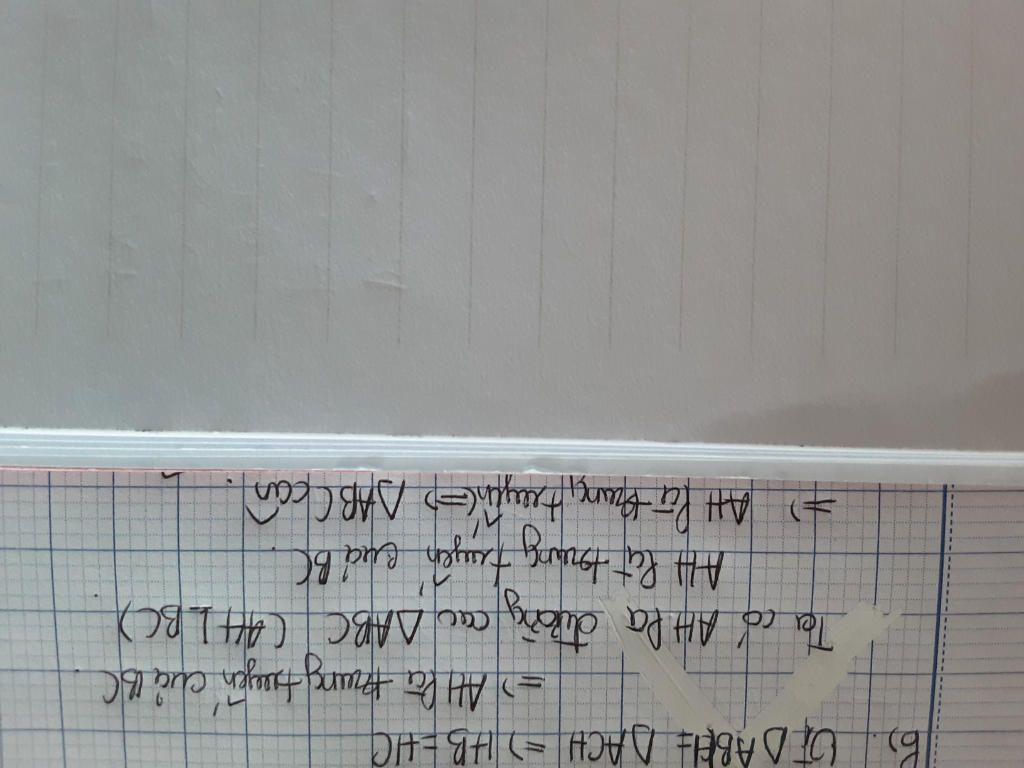 b) Vì ΔABH = ΔACH => HB = HC
=> AH là trung tuyến của BC
Ta có AH là đường cao ΔABC (AH ⊥ BC)
AH là trung tuyến của BC
=> AH là trung tuyến (=> ΔABC cân